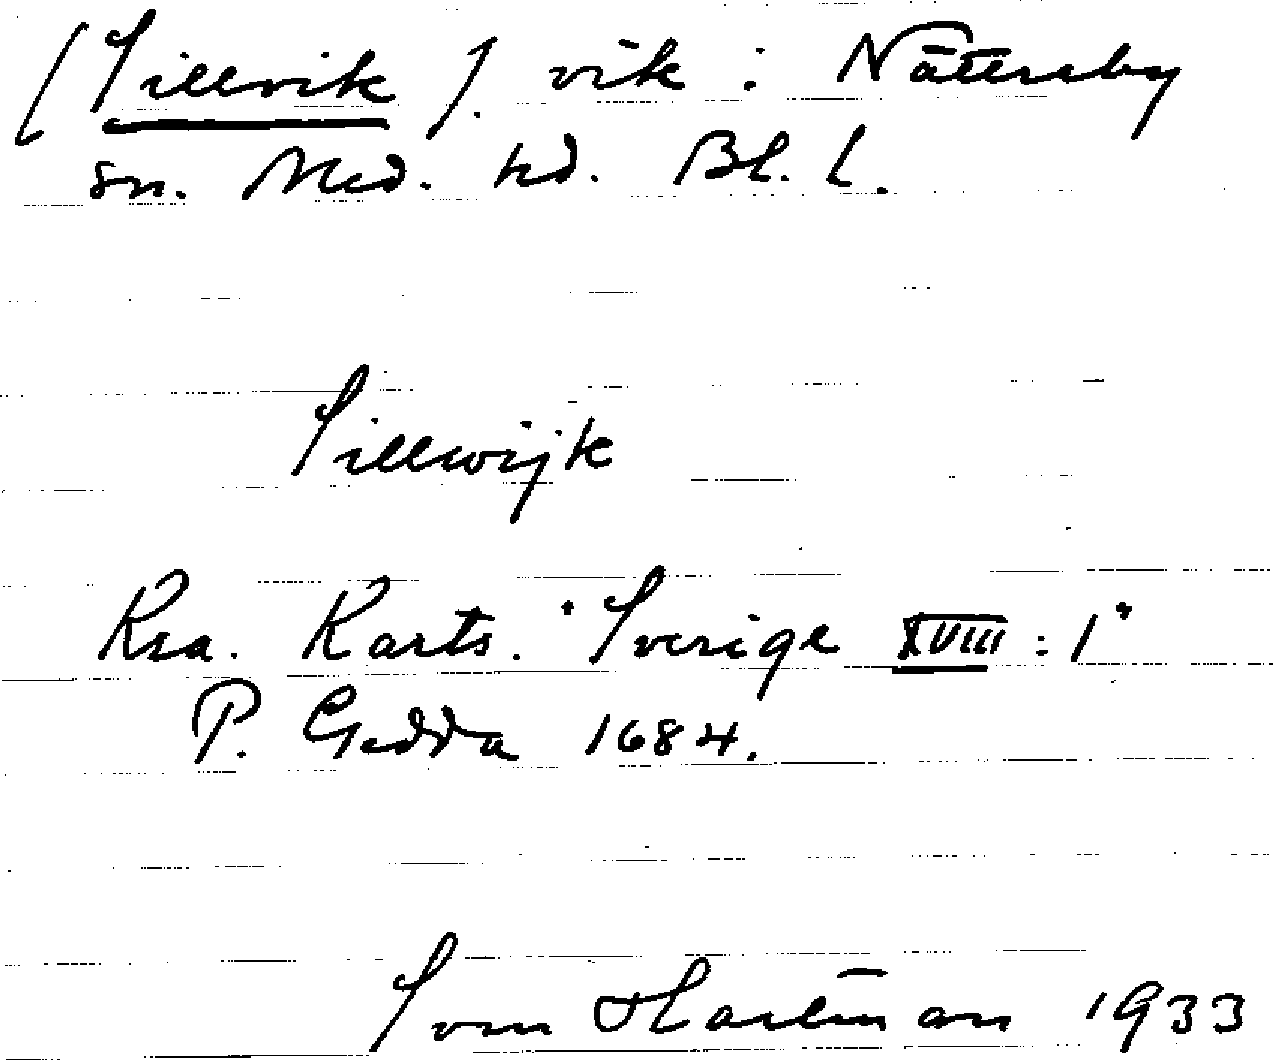 [Sillvik]. vik : Nättraby
sn. Med. hd. Bl. l.
Sillwijk
Kra. Karts. "Sverige XVIII : 1"
P. Gedda 1684.
Sven Hartman 1933